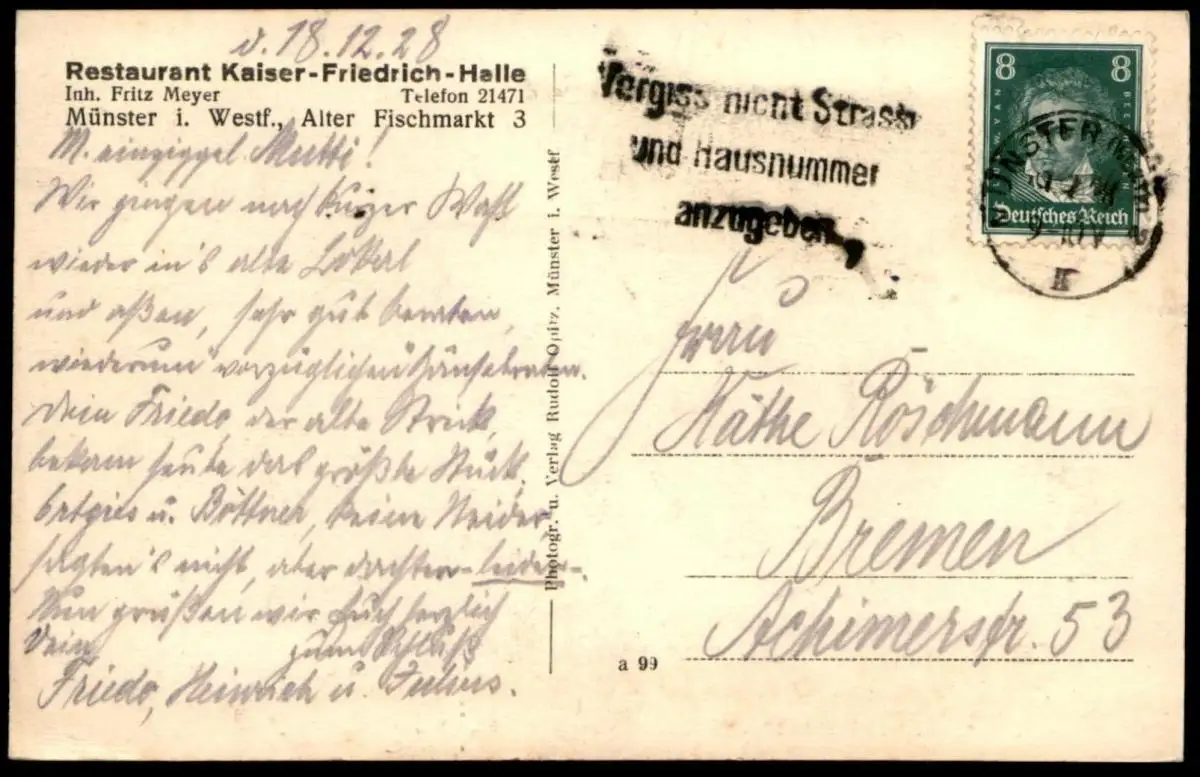 d. 18.12.28
Restaurant Kaiser-Friedrich-Halle
Inh. Fritz Meyer Telefon 21471
Münster i. Westf., Alter Fischmarkt 3
M. einziggel. Mutti!
Wir gingen nach kurzer Wahl
wieder in's alte Lokal
und aßen, sehr gut beraten,
wiederum vorzüglichen Gänsebraten.
Dein Friedo, der alte Strick,
bekam heute das größte Stück.
u. Böttner, keine Neider
sagten's nicht, aber dachten - leider -.
Nun grüßen wir Euch herzlich
Dein zum Schluß
Friedo, Heinrich u. Julius.
Photogr. u. Verlag Rudolf Opitz, Münster i. Westf
Vergiss nicht Strasse
und Hausnummer
anzugeben
8 8
Deutsches Reich
MÜNSTER (WESTF)
Frau
Käthe Röschmann
Bremen
Achimerstr. 53
a 99